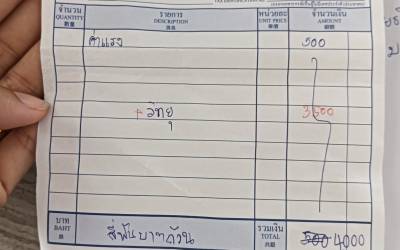 จำนวน รายการ หน่วยละ จำนวนเงิน
QUANTITY DESCRIPTION UNIT PRICE AMOUNT
数量 單價
ค่าแรง 500
+ วิทยุ 3500
บาท สี่พันบาทถ้วน รวมเงิน 500 4000
BAHT TOTAL